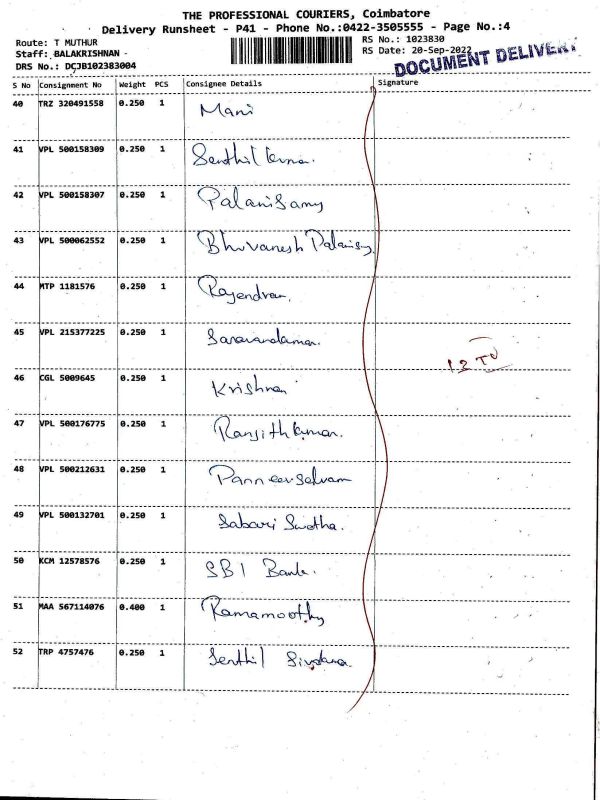 THE PROFESSIONAL COURIERS, Coimbatore
Delivery Runsheet - P41 - Phone No.:0422-3505555 - Page No.:4
Route: T MUTHUR
RS No.: 1023830
Staff: BALAKRISHNAN
RS Date: 20-Sep-2022
DOCUMENT DELIVERY
DRS No.: DCJB102383004
S No Consignment No Weight PCS Consignee Details Signature
40 TRZ 320491558 0.250 1 Mani
41 VPL 500158309 0.250 1 Senthil
42 VPL 500158307 0.250 1 Palanisamy
43 VPL 500062552 0.250 1 Bhuvanesh Palanisamy
44 MTP 1181576 0.250 1 Rajendran.
45 VPL 215377225 0.250 1
46 CGL 5009645 0.250 1 Krishnan
47 VPL 500176775 0.250 1 Ranjithkumar.
48 VPL 500212631 0.250 1 Panneerselvam
49 VPL 500132701 0.250 1 Sabari Swetha.
50 KCM 12578576 0.250 1 SBI Bank.
51 MAA 567114076 0.400 1 Ramamoothy
52 TRP 4757476 0.250 1 Senthil